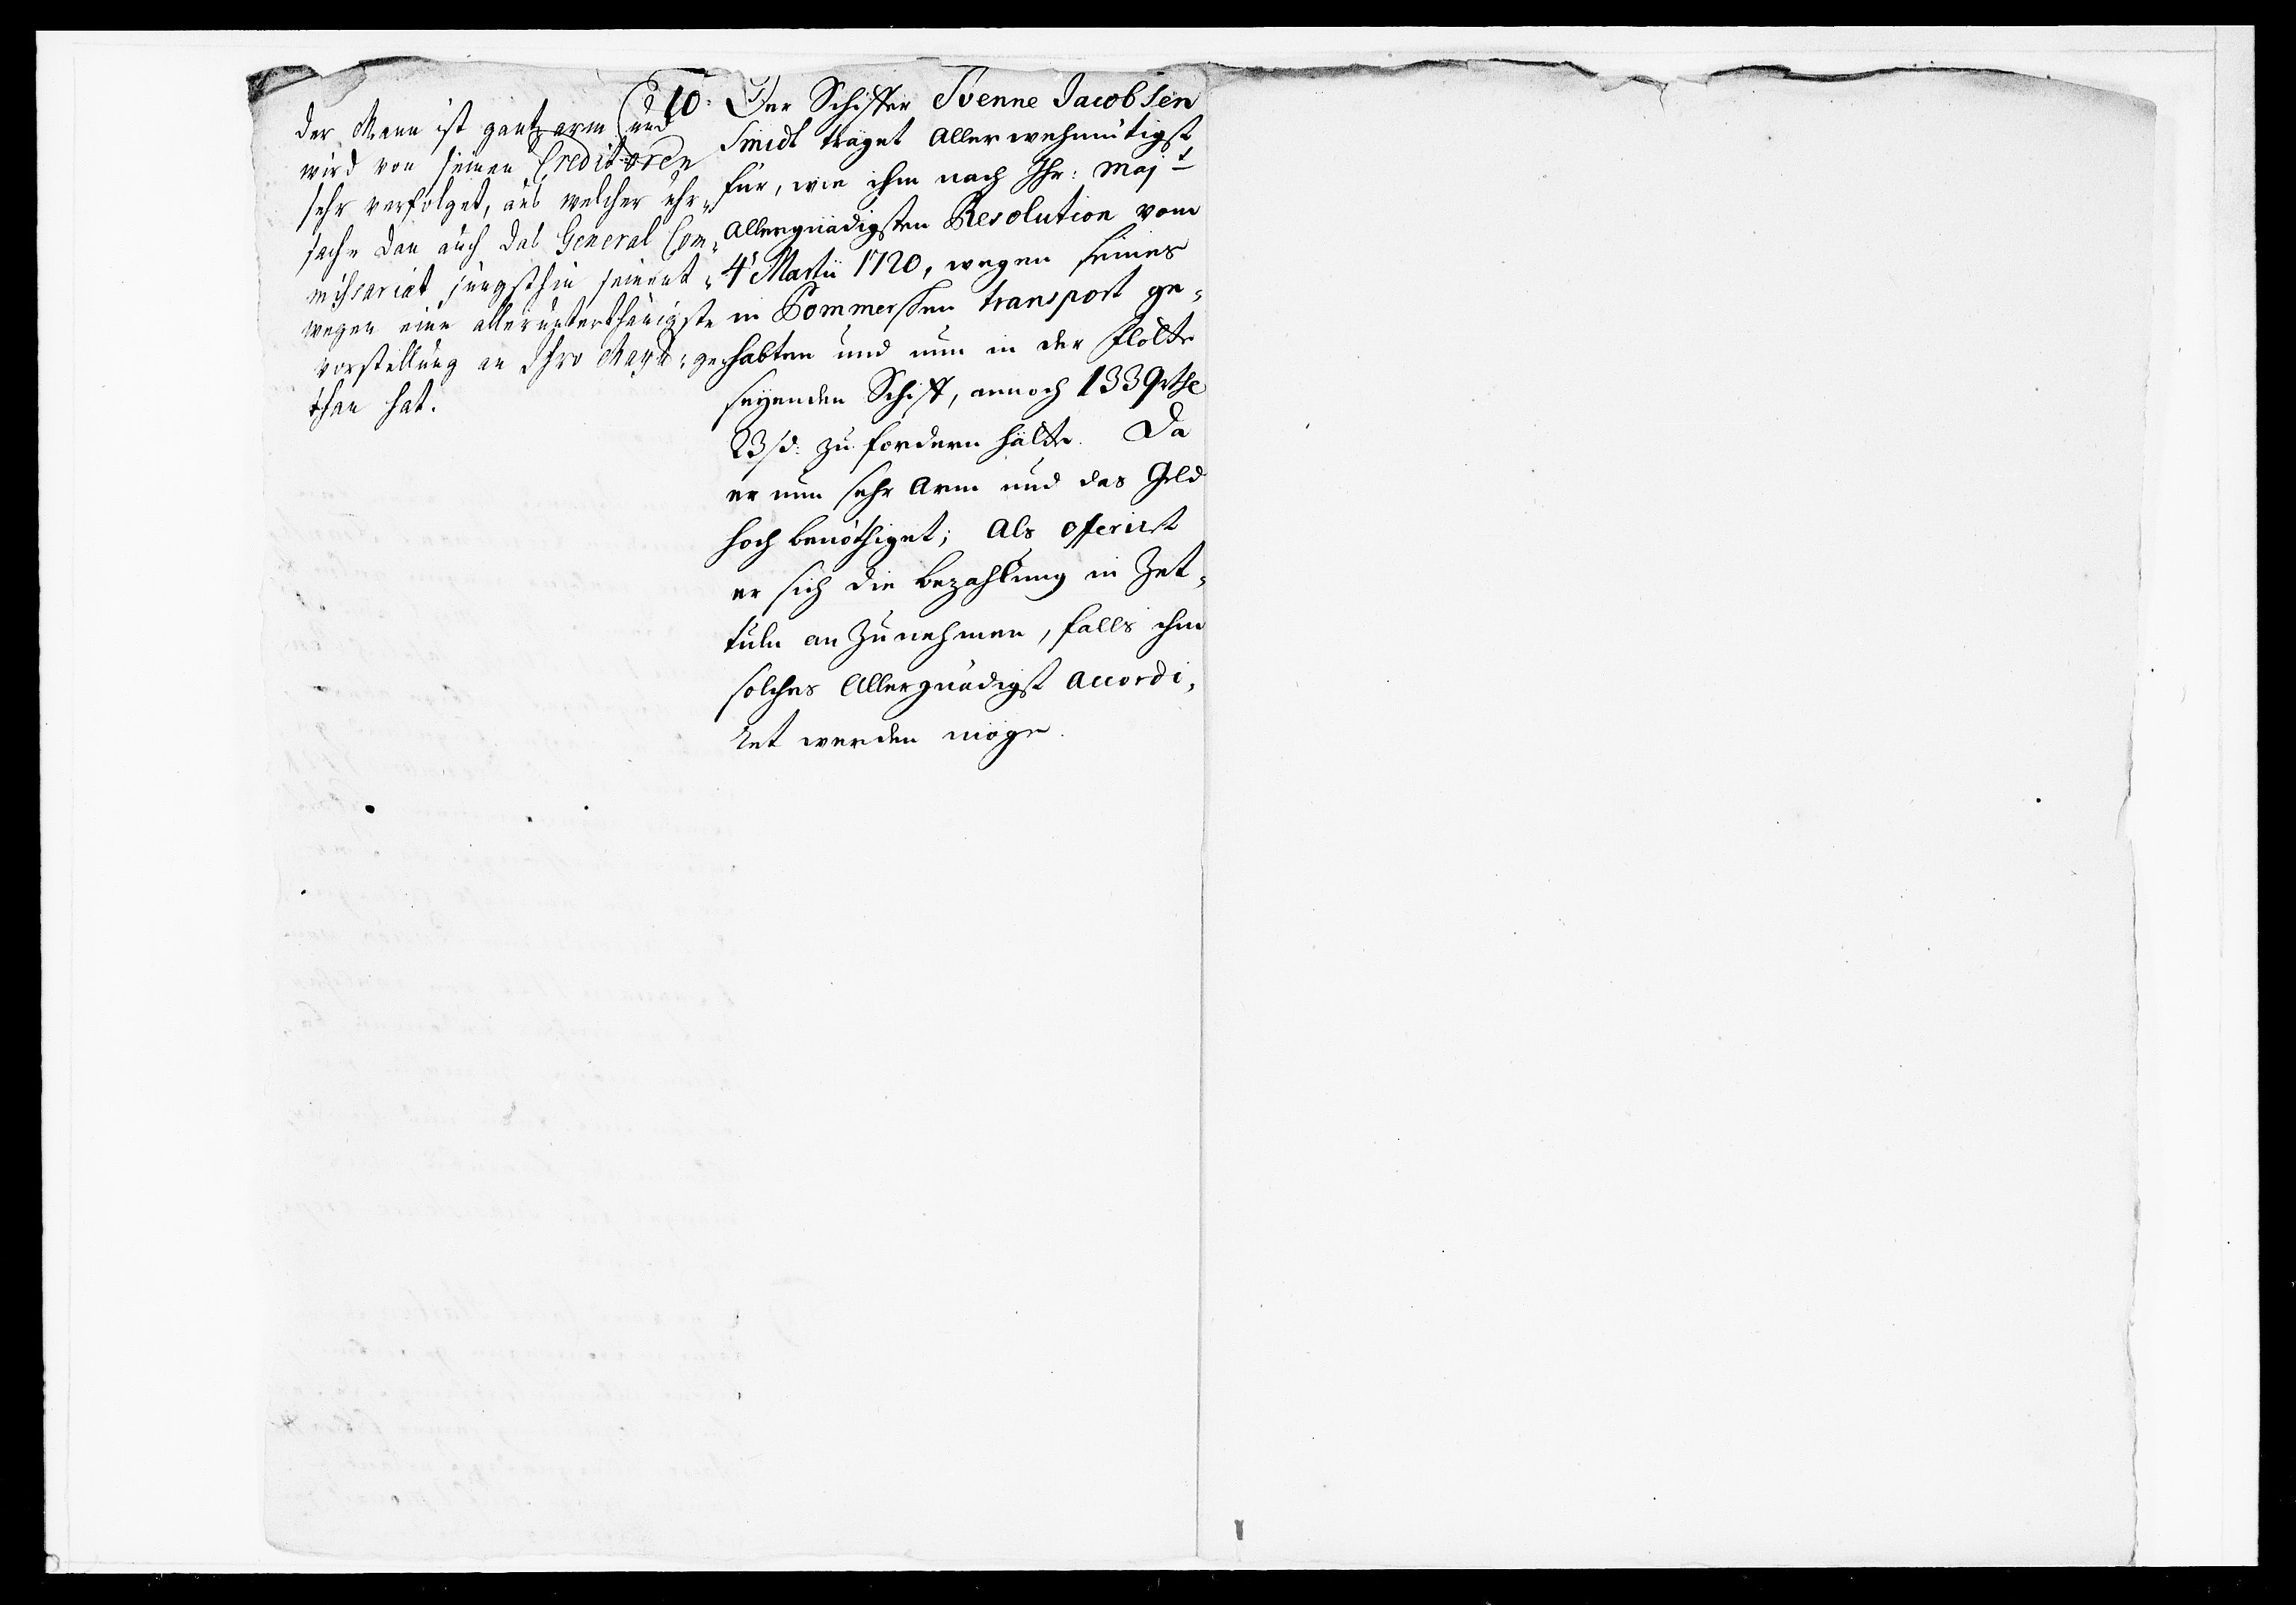 der Mann ist gantz arm und
wird von seinen Creditoren
sehr verfolget, aus welcher uhr=
sache dan auch das General Com=
missariat jüngsthin seinent=
wegen eine allerunterthänigste
vorstellung an Ihro Maytt: ge=
than hat.
10. Der Schiffer Svenne Jacobsen
Smidt träget Allerwehmütigst
für, wie ihm nach Ihr: Majt
Allergnädigsten Resolution vom
4t Martii 1720, wegen seines
in Pommerschen transport ge=
habten und nun in der flotte
seyenden Schiff, annoch 1339 rthe
23 sd: zu fordern hätte. Da
er nun sehr Arm und das Geld
hoch benöthiget; Als offerirt
er sich die bezahlung in Zet=
tuln an Zu nehmen, falls ihm
solches Allergnädigst accordi=
ret werden möge.